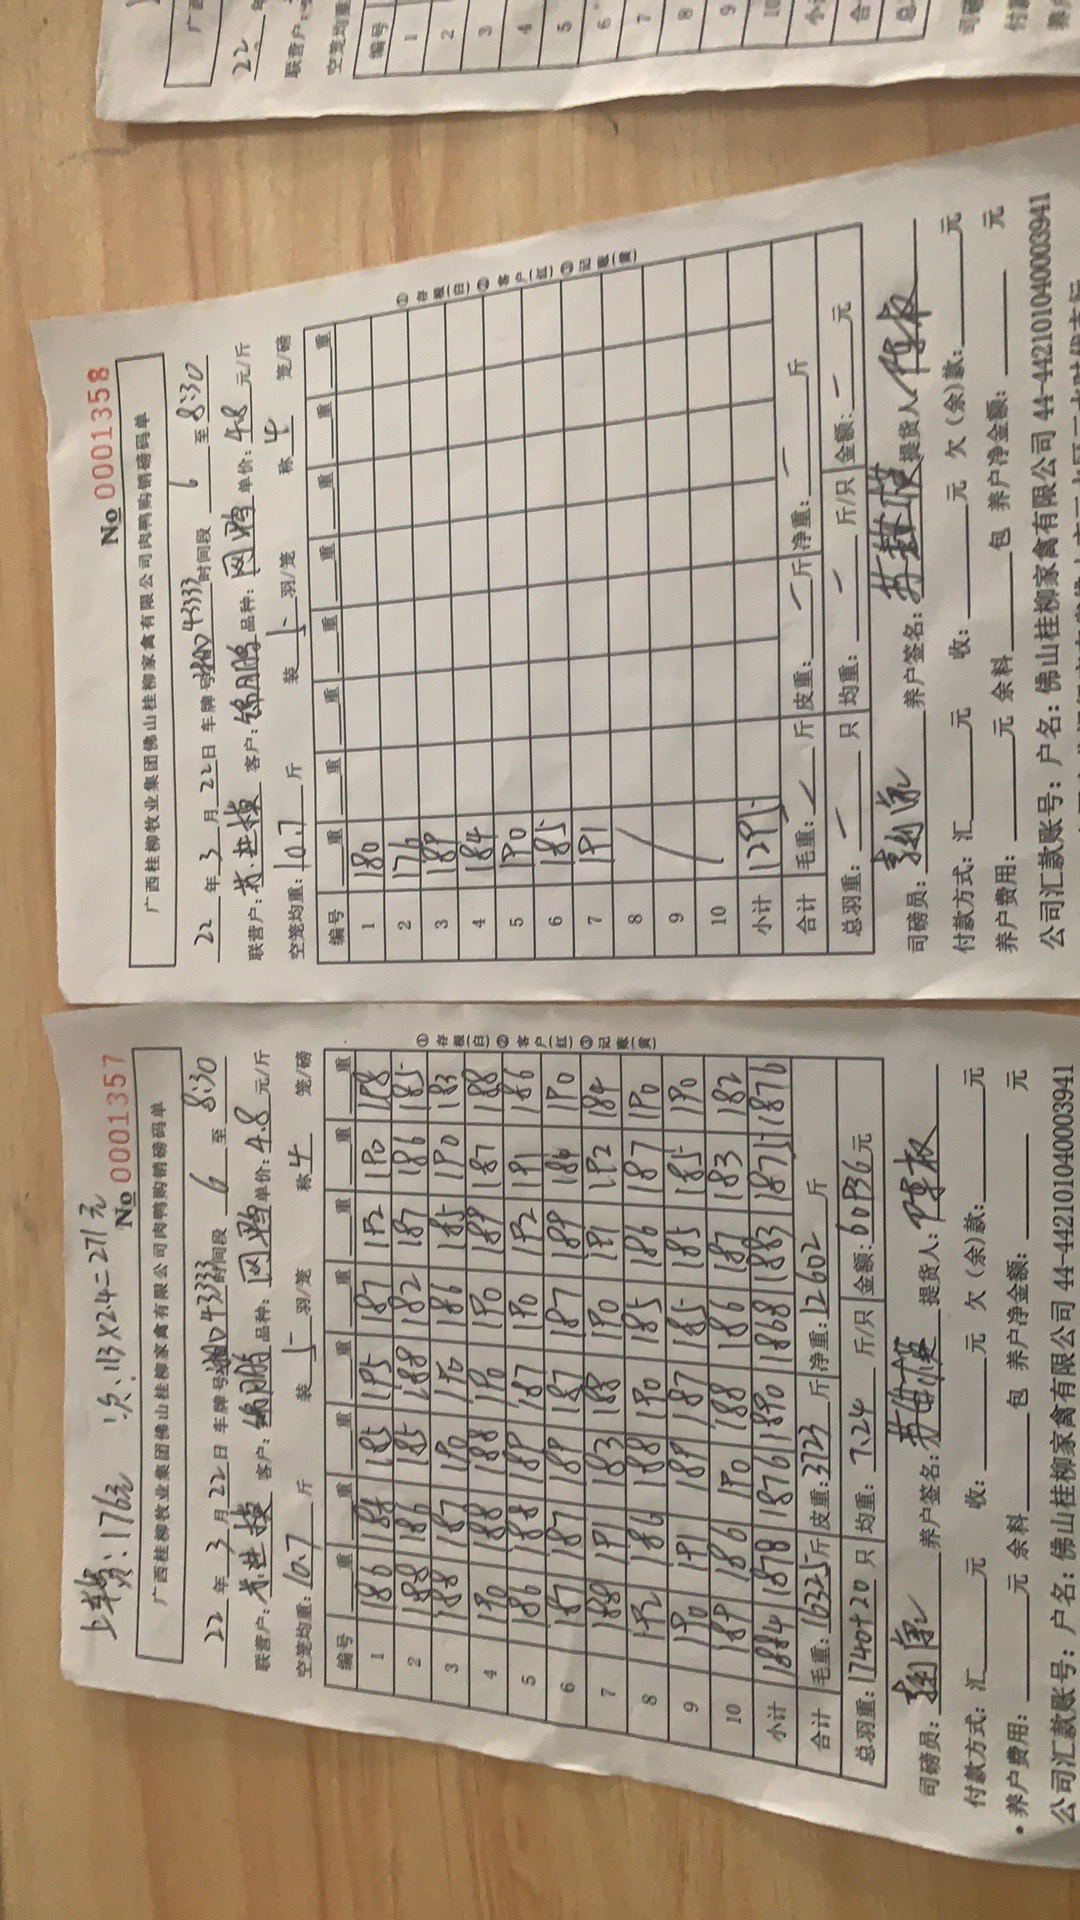 上车费：176元 次：113×2.4=271元
No 0001357
广西桂柳牧业集团佛山桂柳家禽有限公司肉鸭购销磅码单
22 年 3 月 22 日 车牌号 43333 时间段 6 至 8:30
联营户： 客户：锦鹏 品种：网鸭 单价：4.8 元/斤
空笼均重：10.7 斤 装 5 羽/笼 称 4 笼/磅
编号 重 重 重 重 重 重 重 重
1 186 184 185 195 187 192 190 198
2 188 186 185 188 182 187 186 185
3 188 187 190 190 186 185 190 183
4 190 188 188 190 190 189 187 188
5 186 188 189 187 190 192 191 186
6 187 187 189 187 187 189 186 190
7 188 191 183 188 190 191 192 184
8 192 186 188 190 185 186 187 190
9 190 191 189 187 185 185 185 190
10 189 186 190 188 186 187 183 182
小计 1884 1878 1876 1890 1868 1883 1875 1876
合计 毛重：16325 斤 皮重：3723 斤 净重：12602 斤
总羽重：1740+20 只 均重：7.24 斤/只 金额：60936 元
司磅员： 养户签名： 提货人：
付款方式：汇 元 收： 元 欠（余）款： 元
养户费用： 元 余料 包 养户净金额： 元
公司汇款账号：户名：佛山桂柳家禽有限公司 44-442101040003941
①存根(白)②客户(红)③记账(黄)
No 0001358
广西桂柳牧业集团佛山桂柳家禽有限公司肉鸭购销磅码单
22 年 3 月 22 日 车牌号 43333 时间段 6 至 8:30
联营户： 客户：锦鹏 品种：网鸭 单价：4.8 元/斤
空笼均重：10.7 斤 装 5 羽/笼 称 4 笼/磅
编号 重 重 重 重 重 重 重 重
1 180
2 176
3 189
4 184
5 190
6 185
7 191
8
9
10
小计 1295
合计 毛重： 斤 皮重： 斤 净重： 斤
总羽重： 只 均重： 斤/只 金额： 元
司磅员： 养户签名： 提货人：
付款方式：汇 元 收： 元 欠（余）款： 元
养户费用： 元 余料 包 养户净金额： 元
公司汇款账号：户名：佛山桂柳家禽有限公司 44-442101040003941
①存根(白)②客户(红)③记账(黄)
广西
22 年
联营户：
空笼均重
编号
1
2
3
4
5
6
7
8
9
10
小
合
总
司磅
付款
养户